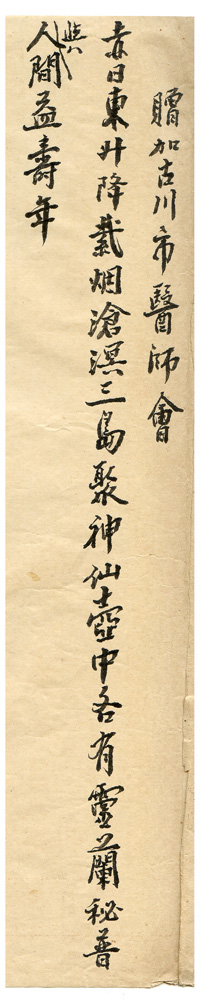 贈加古川市醫師會
赤日東升降紫烟滄溟三島聚神仙壺中各有靈蘭秘普
人間益壽年